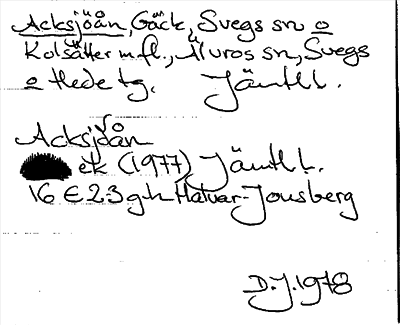 Acksjöån, Gäck, Svegs sn o
Kolsätter m.fl., Älvros sn, Svegs
o Hede tg. Jämtl l.
Acksjöån
ek (1977) Jämtl l.
16 E 2-3 g-h Halvar- Jonsberg
D.J. 1978